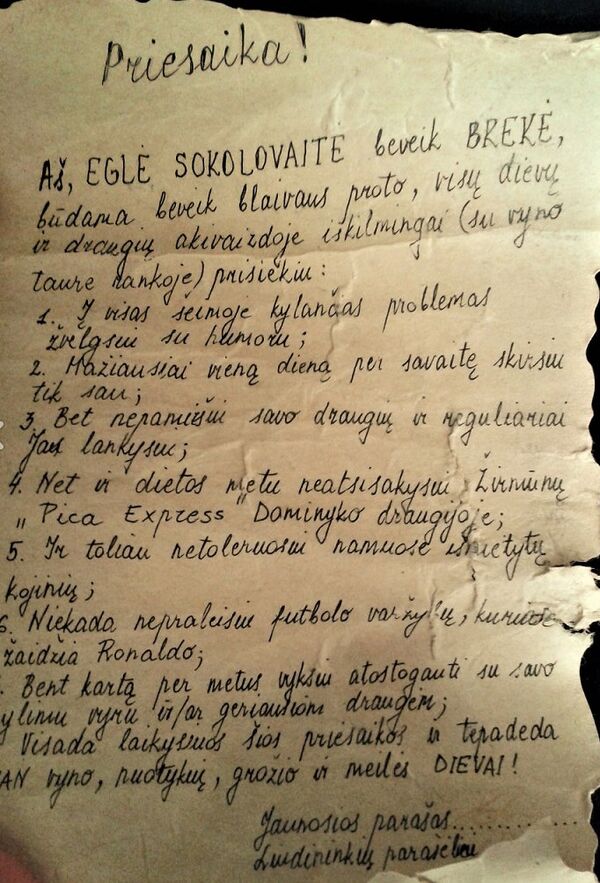 Priesaika!
Aš, EGLĖ SOKOLOVAITĖ beveik BREKĖ,
būdama beveik blaivaus proto, visų dievų
ir draugių akivaizdoje iškilmingai (su vyno
taure rankoje) prisiekiu:
1. Į visas šeimoje kylančas problemas
žvelgsiu su humoru;
2. Mažiausiai vieną dieną per savaitę skirsiu
tik sau;
3. Bet nepamiršiu savo draugių ir reguliariai
Jas lankysiu;
4. Net ir dietos metu neatsisakysiu Žirmūnų
„Pica Express" Dominyko draugijoje;
5. Ir toliau netoleruosiu namuose išmėtytų
kojinių;
6. Niekada nepraleisiu futbolo varžybų, kuriose
žaidžia Ronaldo;
. Bent kartą per metus vyksiu atostogauti su savo
ylimu vyru ir/ar geriausiom draugėm;
Visada laikysiuos šios priesaikos ir tepadeda
AN vyno, nuotykių, grožio ir meilės DIEVAI!
Jaunosios parašas..........
Liudininkių parašėliai